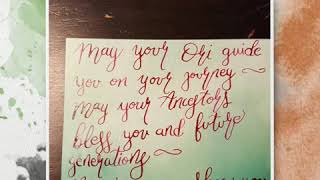 May your Ori guide
you on your journey ~
May your Ancestors
bless you and future
generations ~